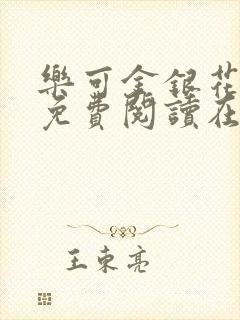 樂可金銀花
免費閱讀在
王東亮